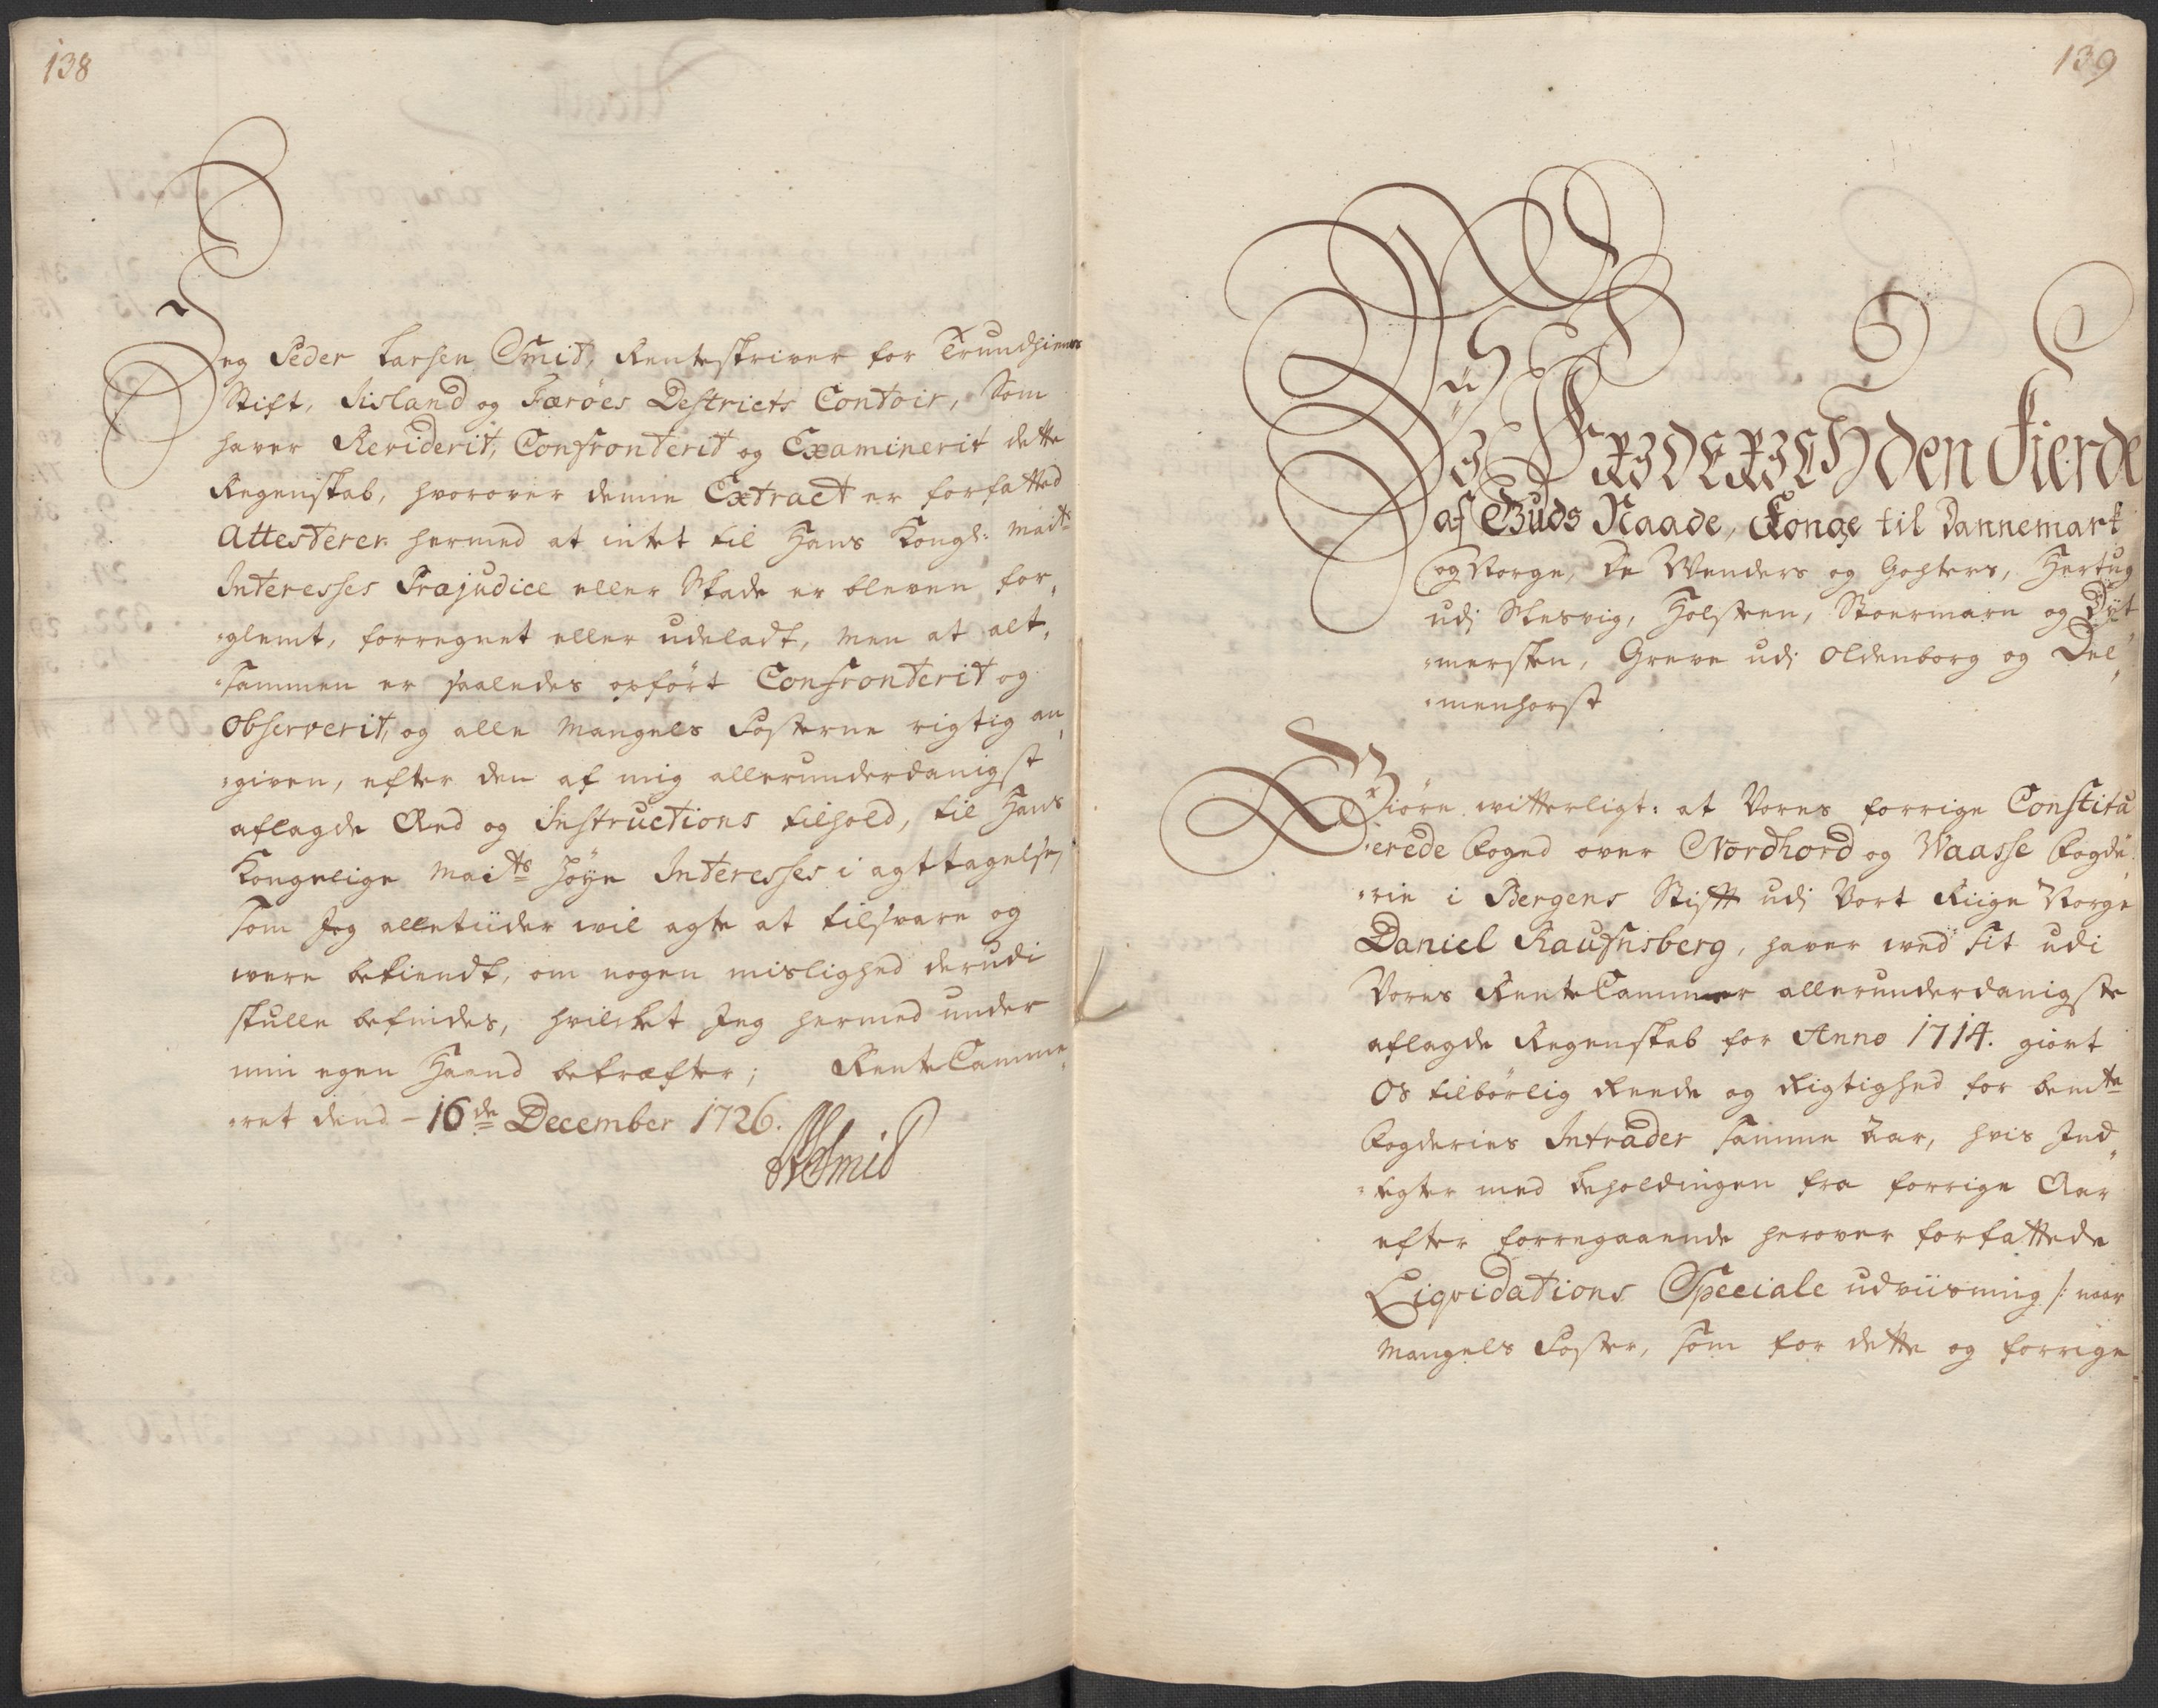 138
Jeg Peder Larsen Smit, Renteskriver for Trundhiems
Stift, Iisland og Færöes Destricts Contoir, Som
haver Reviderit, Confronterit og Examinerit dette
Regenskab, hvorover denne Extract er forfatted
Attesterer hermed at intet til Hans Kongl: Maits
Interesses Præjudice eller Skade er bleven for„
„glemt, forregnet eller udeladt, men at alt„
„sammen er saaledes opfört Confronterit og
Observerit, og alle Mangels Posterne rigtig an„
„given, efter den af mig allerunderdanigst
aflagde Æed og Instructions tilhold, til Hans
Kongelige Maits Höye Interesses i agttagelse,
som Jeg alletiider wil agte at tilsvare og
were bekiendt, om nogen mislighed derudi
skulle befindes, hvilcket Jeg hermed under
min egen Haand bekræfter; RenteCamme„
„ret dend - 16de December 1726.
PLSmid
139
Wii FRIDERICH den Fierde
af Guds Naade, Konge til Dannemark
og Norge, De Wenders og Gothers, Hertug
udj Slesvig, Holsteen, Stoermarn og Dyt
„mersken, Greve udi Oldenborg og Del„
„menhorst
Giöre witterligt: at Vores forrige Constitu
„erede Foged over Nordhord og Waasse Fogde„
„rie i Bergens Stift udj Vort Riige Norge
Daniel Raufnsberg, haver wed sit udi
Vores RenteCammer allerunderdanigste
aflagde Regenskab for Anno 1714. giort
Os tilbörlig Reede og Rigtighed for bemte
Fogderies Intrader samme Aar, hvis Ind„
„tegter med Beholdingen fra forrige Aar
efter forregaaende herover forfattede
Liqvidations Speciale udviisning /: naar
Mangels Poster, som for dette og forrige